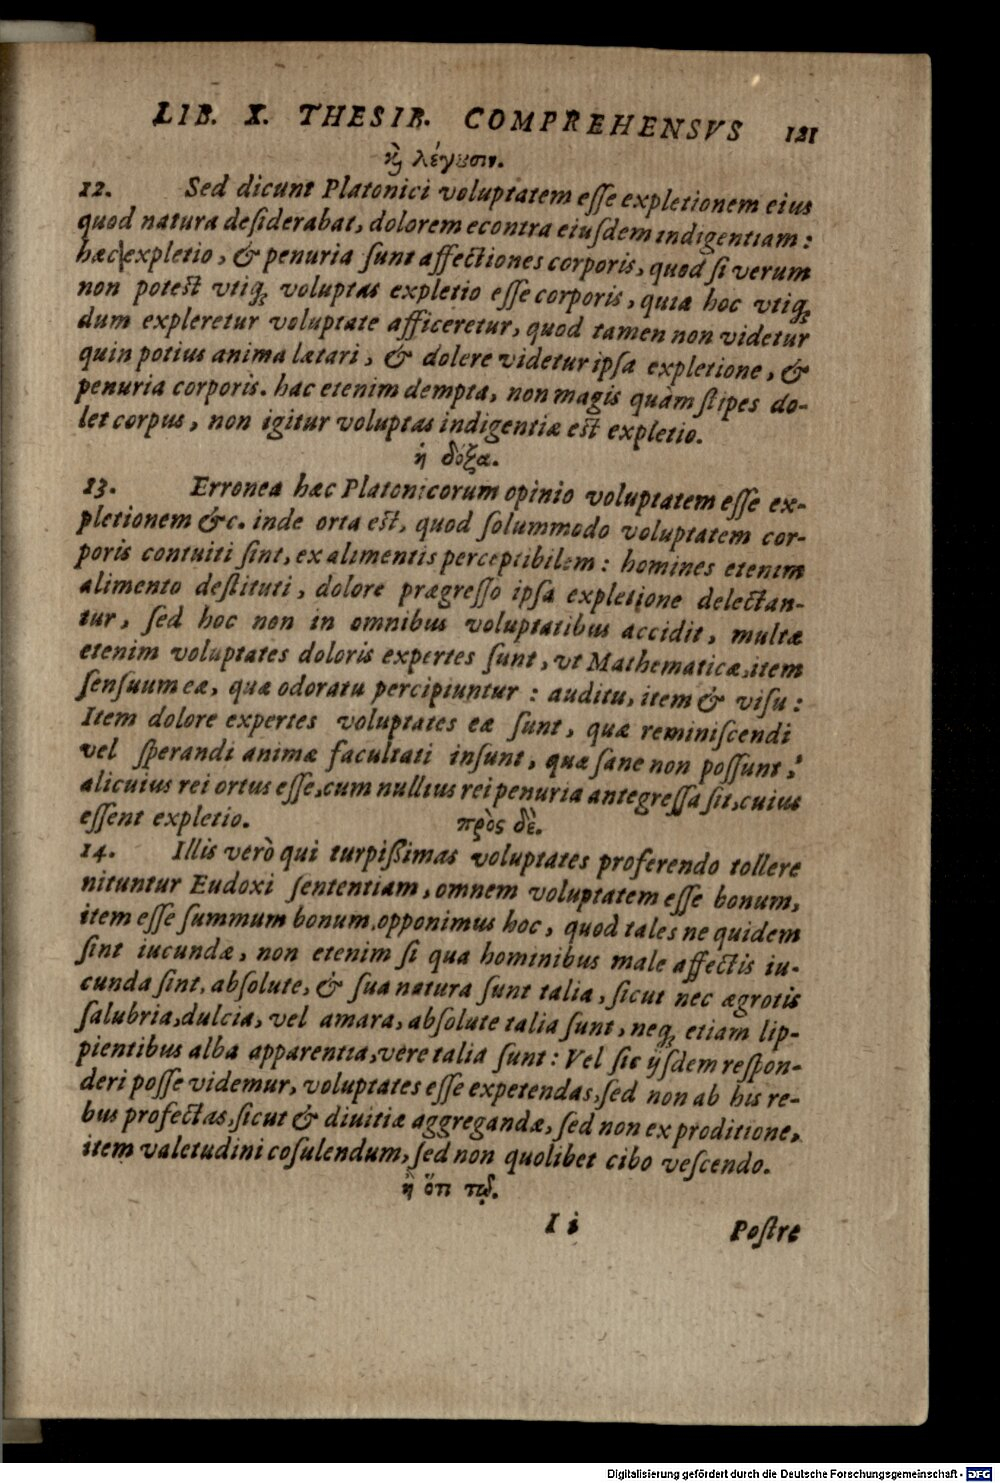 LIB. X. THESIB. COMPREHENSVS 121
κỳ λέγουσιν.
12. Sed dicunt Platonici voluptatem eſſe expletionem eius
quod natura deſiderabat, dolorem econtra eiuſdem indigentiam:
hæc expletio, & penuria ſunt affectiones corporis, quod ſi verum
non poteſt vtiq; voluptas expletio eſſe corporis, quia hoc vtiq;
dum expleretur voluptate afficeretur, quod tamen non videtur
quin potius anima lætari, & dolere videtur ipſa expletione, &
penuria corporis. hac etenim dempta, non magis quàm ſtipes do-
let corpus, non igitur voluptas indigentiæ eſt expletio.
ἡ δόξα.
13. Erronea hæc Platonicorum opinio voluptatem eſſe ex-
pletionem &c. inde orta eſt, quod ſolummodo voluptatem cor-
poris contuiti ſint, ex alimentis perceptibilem: homines etenim
alimento deſtituti, dolore prægreſſo ipſa expletione delectan-
tur, ſed hoc non in omnibus voluptatibus accidit, multæ
etenim voluptates doloris expertes ſunt, vt Mathematicæ, item
ſenſuum eæ, quæ odoratu percipiuntur: auditu, item & viſu:
Item dolore expertes voluptates eæ ſunt, quæ reminiſcendi
vel ſperandi animæ facultati inſunt, quæ ſane non poſſunt,
alicuius rei ortus eſſe, cum nullius rei penuria antegreſſa ſit, cuius
eſſent expletio.
πρὸς δὲ.
14. Illis verò qui turpißimas voluptates proferendo tollere
nituntur Eudoxi ſententiam, omnem voluptatem eſſe bonum,
item eſſe ſummum bonum, opponimus hoc, quod tales ne quidem
ſint iucundæ, non etenim ſi qua hominibus male affectis iu-
cunda ſint, abſolute, & ſua natura ſunt talia, ſicut nec ægrotis
ſalubria, dulcia, vel amara, abſolute talia ſunt, neq; etiam lip-
pientibus alba apparentia, vere talia ſunt: Vel ſic ijſdem reſpon-
deri poſſe videmur, voluptates eſſe expetendas, ſed non ab his re-
bus profectas, ſicut & diuitiæ aggregandæ, ſed non ex proditione,
item valetudini coſulendum, ſed non quolibet cibo veſcendo.
ἢ ὅτι
I i Poſtre
Digitalisierung gefördert durch die Deutsche Forschungsgemeinschaft - DFG